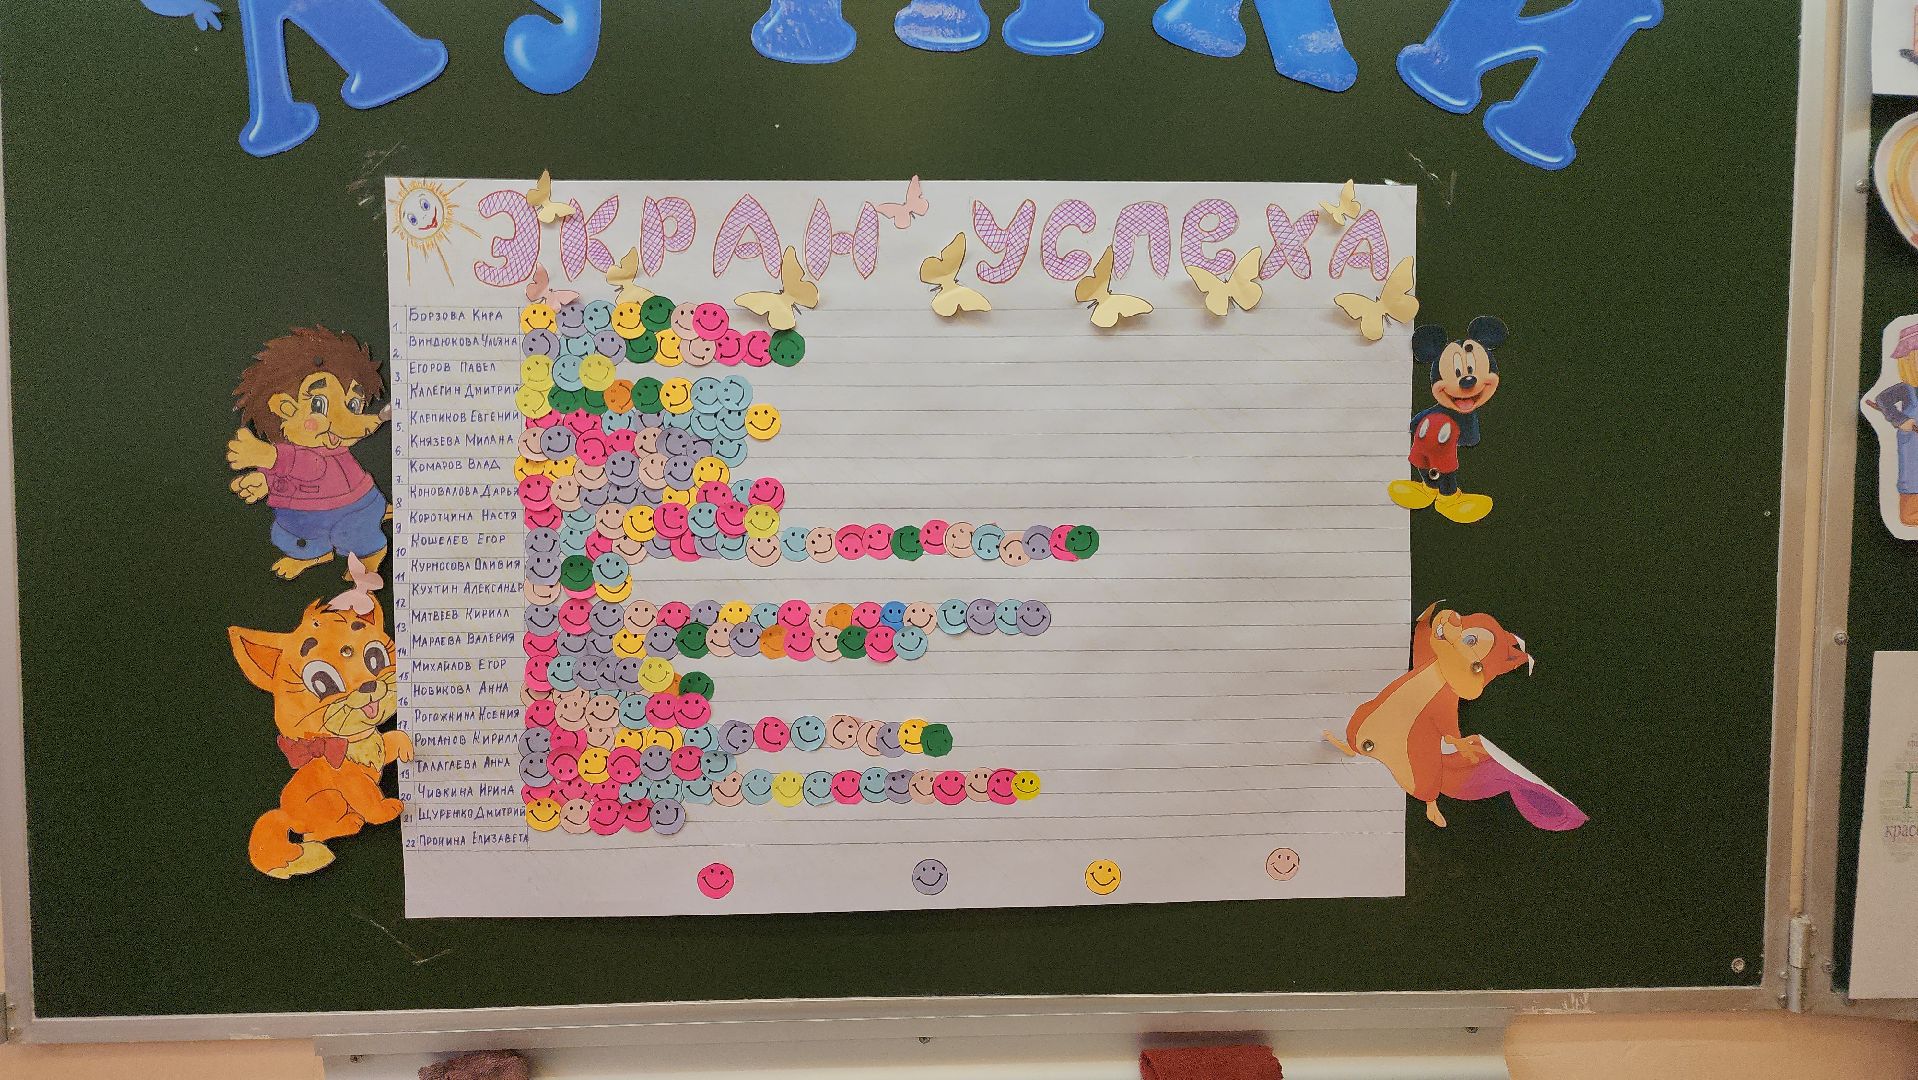 ЭКРАН УСПЕХА
1. БОРЗОВА КИРА
2. ВИНДЮКОВА УЛЬЯНА
3. ЕГОРОВ ПАВЕЛ
4. КАЛЕГИН ДМИТРИЙ
5. КЛЕПИКОВ ЕВГЕНИЙ
6. КНЯЗЕВА МИЛАНА
7. КОМАРОВ ВЛАД
8 КОНОВАЛОВА ДАРЬЯ
9 КОРОТЧИНА НАСТЯ
10 КОШЕЛЕВ ЕГОР
11 КУРНОСОВА ОЛИВИЯ
12 КУХТИН АЛЕКСАНДР
13 МАТВЕЕВ КИРИЛЛ
14 МАРАЕВА ВАЛЕРИЯ
15 МИХАЙЛОВ ЕГОР
16 НОВИКОВА АННА
17 РОГОЖКИНА КСЕНИЯ
РОМАНОВ КИРИЛЛ
19 ТАЛАГАЕВА АННА
20 ЧИВКИНА ИРИНА
21 ЩУРЕНКО ДМИТРИЙ
22 ПРОНИНА ЕЛИЗАВЕТА